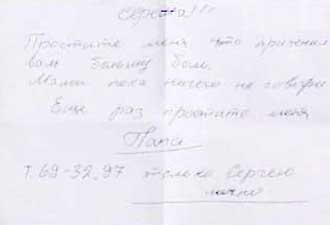 Сережа!!!
Простите меня что причинил
вам большую боль.
Маме пока ничего не говори
Еще раз простите меня
Папа
т. 69-32.97 только Сергею
лично